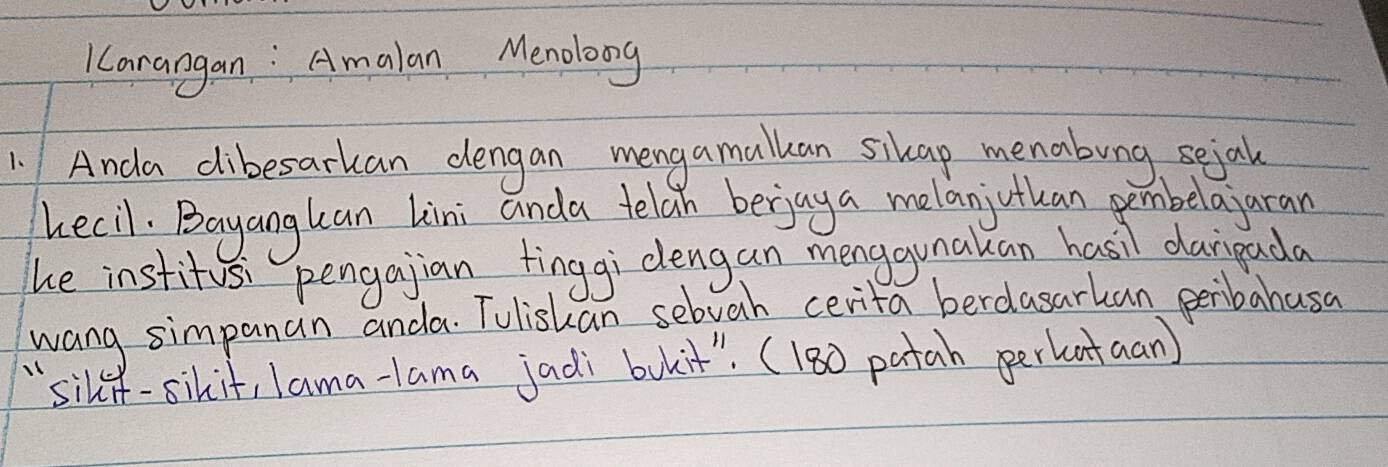 Karangan : Amalan Menoloong
1. Anda dibesarkan dengan mengamalkan sikap menabung sejak
kecil. Bayangkan kini anda telah berjaya melanjutkan pembelajaran
ke institusi pengajian tinggi dengan menggunakan hasil daripada
wang simpanan anda. Tuliskan sebuah cerita berdasarkan peribahasa
"sikit-sikit, lama-lama jadi bukit". (180 patah perkataan)